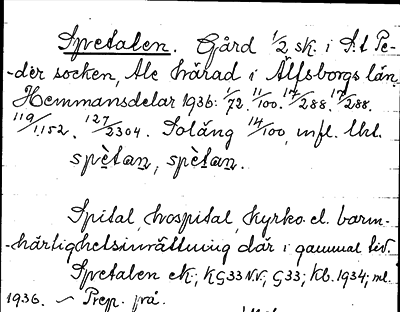 Spetalen. Gård 1/2 sk. i S:t Pe-
-der socken, Ale härad i Älfsborgs län.
Hemmansdelar 1936: 1/72. 11/100. 17/288. 17/288.
119/1152. 127/2304. Soläng 14/100, infl. lkl.
spètan, spètan.
Spital, hospital, kyrko- el. barm-
-härtighetsinrättning där i gammal tid.
Spetalen ek; KG33 N.V.; G33; Kb. 1934; ml.
1936. ~ Prep. på.